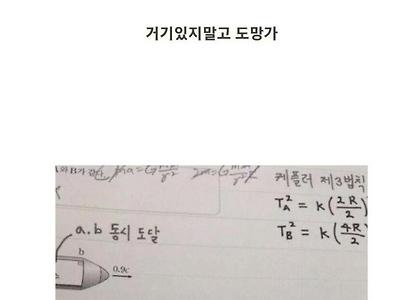 거기있지말고 도망가
케플러 제3법칙
T_A² = K(2R/2)
T_B² = K(4R/2)
a.b 동시 도달
b
0.9c